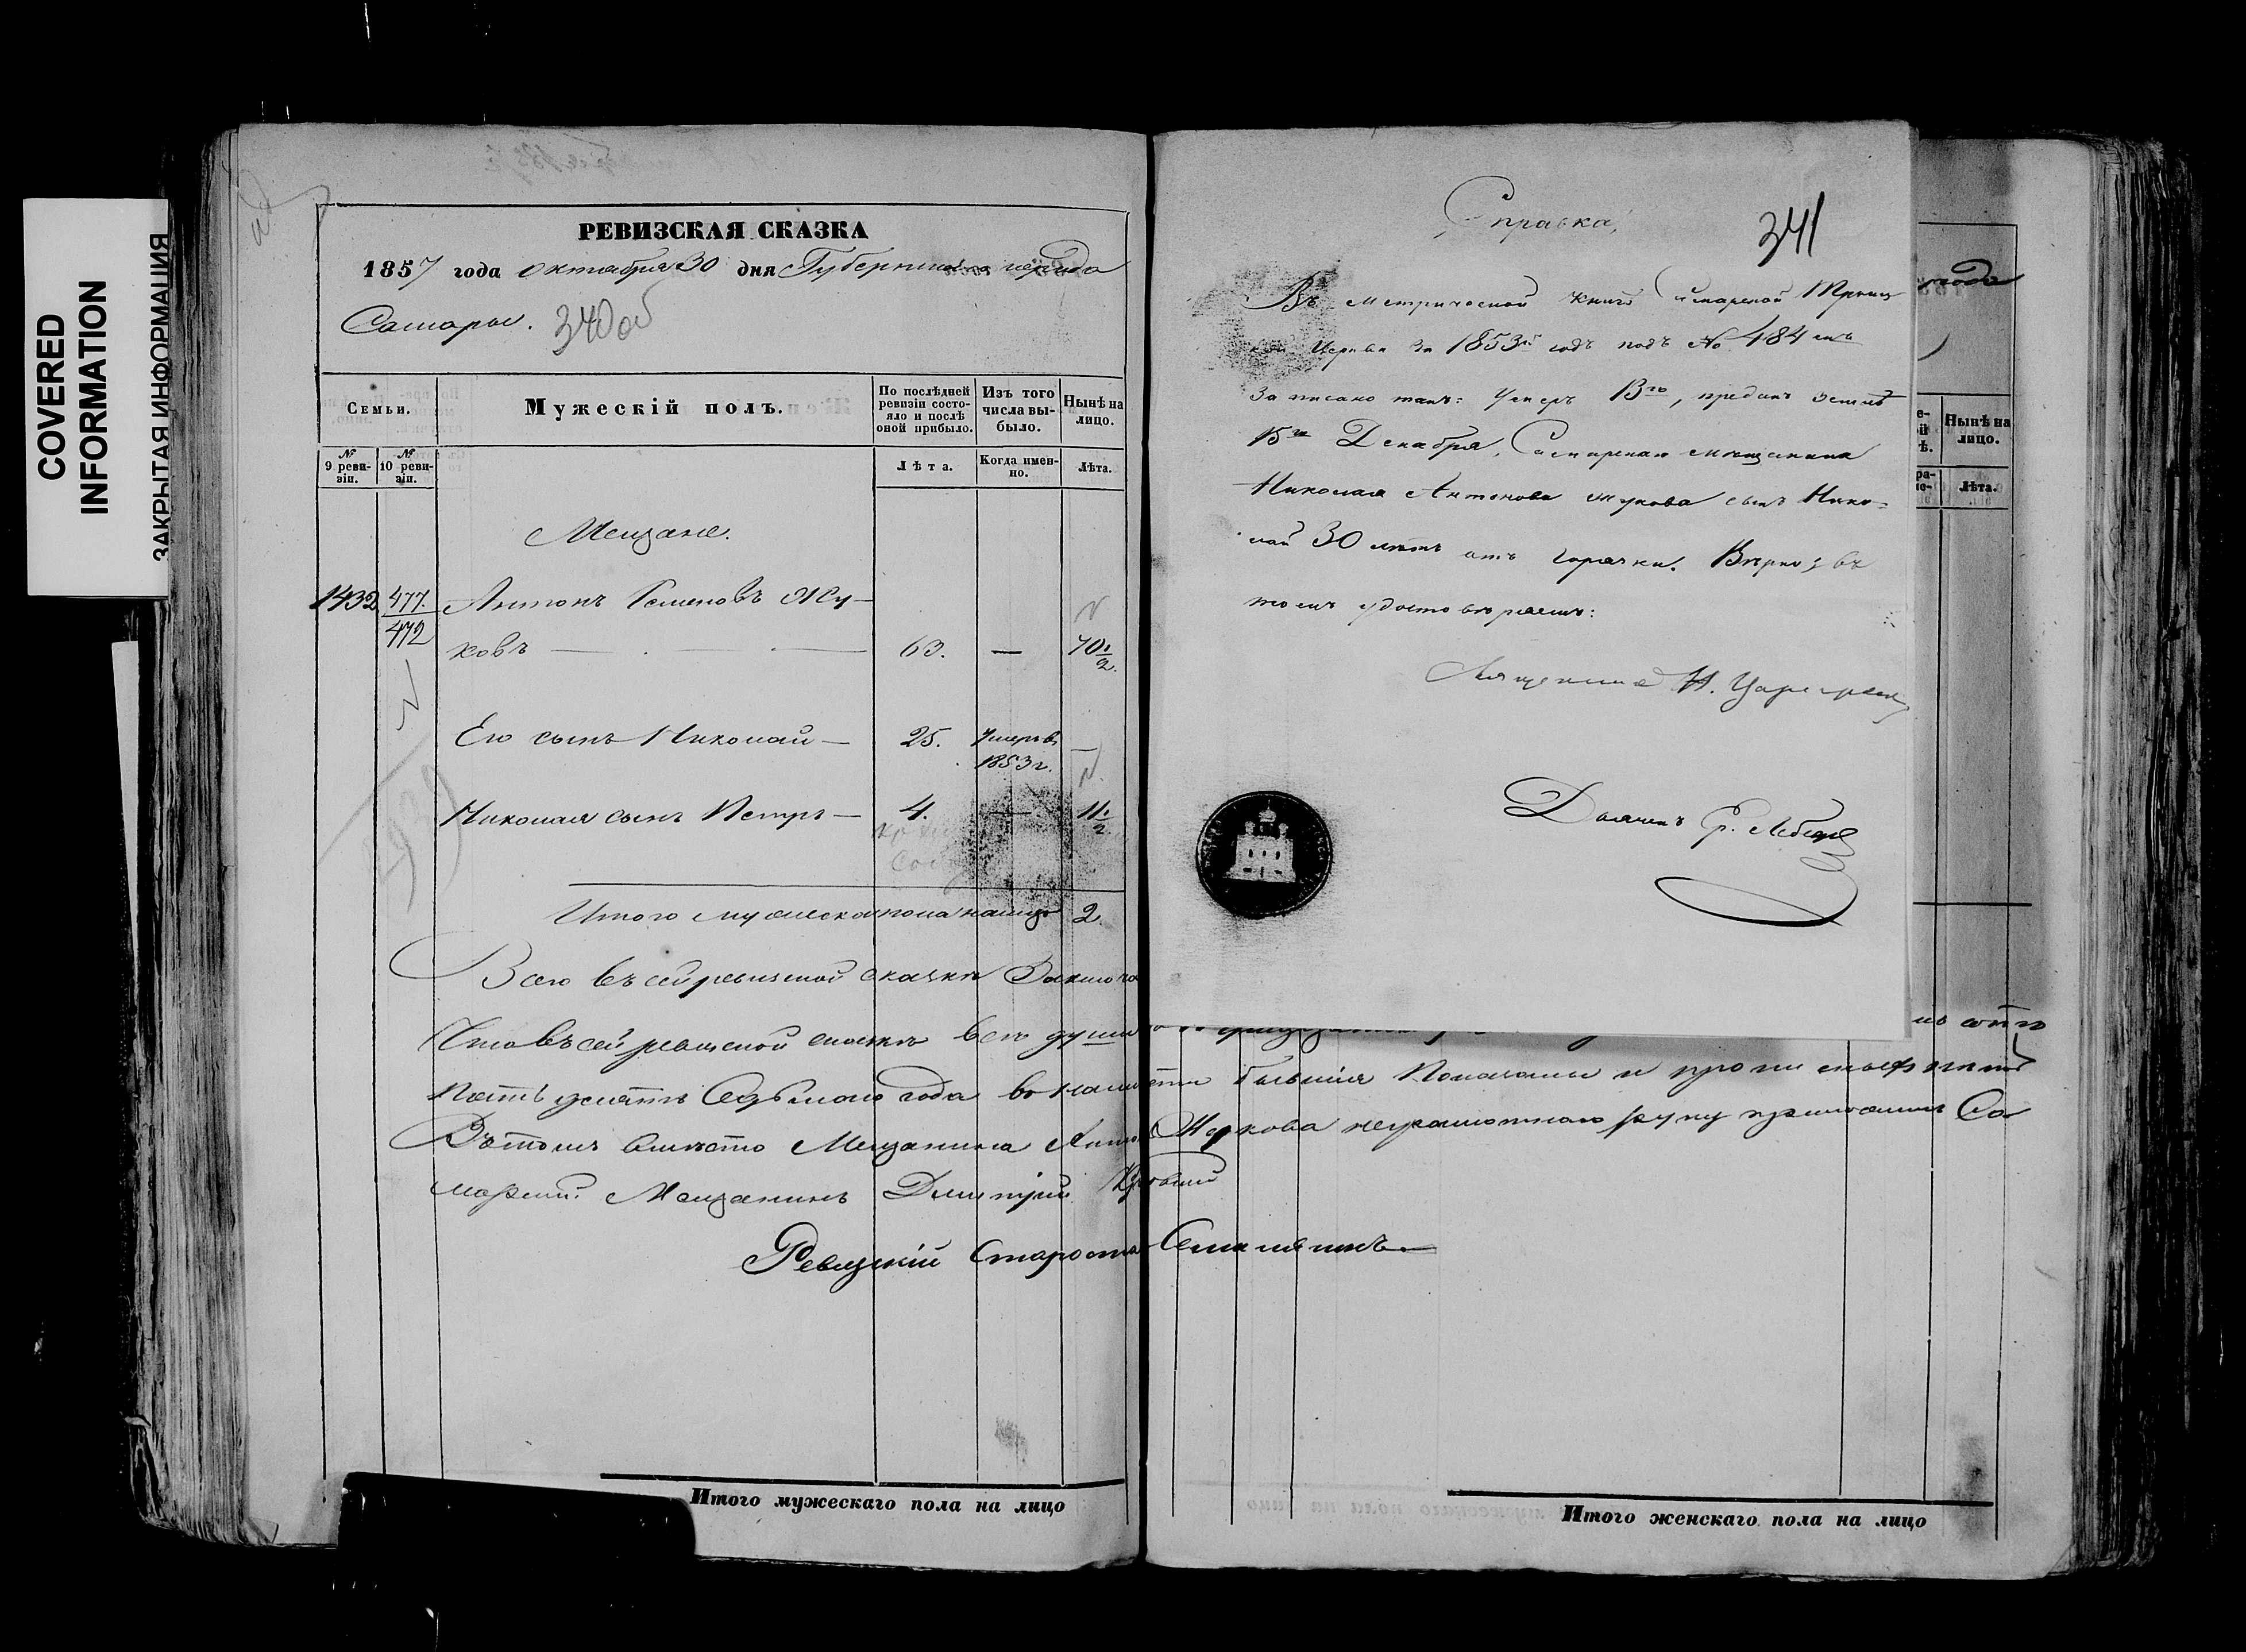 COVERED
INFORMATION
ЗАКРЫТАЯ ИНФОРМАЦИЯ
РЕВИЗСКАЯ СКАЗКА
1857 года октября 30 дня Губернскаго города
Самары. 340 об
Семьи.
Мужескій полъ.
По послѣдней ревизіи состояло и послѣ оной прибыло.
Изъ того числа выбыло.
Нынѣ на лицо.
№ 9 ревизіи.
№ 10 ревизіи.
Лѣта.
Когда именно.
Лѣта.
Мещане.
1432 477. Антонъ Семеновъ Жу-
472 ковъ — 63. — 70 1/2.
Его сынъ Николай — 25. Умеръ въ 1853 г. —
Николая сынъ Петръ — 4. — 11 1/2
Итого мужеска пола налицо 2.
Всего въ сей ревизской сказкѣ
Что въ сей ревизской сказкѣ всѣ души
Въ томъ вмѣсто Мещанина Антона Жукова неграмотнаго руку приложилъ Са
марскій Мещанинъ Дмитрій
Ревизскій Староста
Итого мужескаго пола на лицо
Справка,
341
Въ метрической книгѣ Самарской Троиц
кой Церкви за 1853й годъ подъ № 484 мъ
записано такъ: Умеръ 13го, преданъ землѣ
15го Декабря, Самарскаго мѣщанина
Николая Антонова Жукова сынъ Нико-
лай 30 лѣтъ отъ горячки. Вѣрно; въ
томъ удостовѣряемъ:
Священникъ
Діаконъ
города
Нынѣ на лицо.
Лѣта.
Итого женскаго пола на лицо